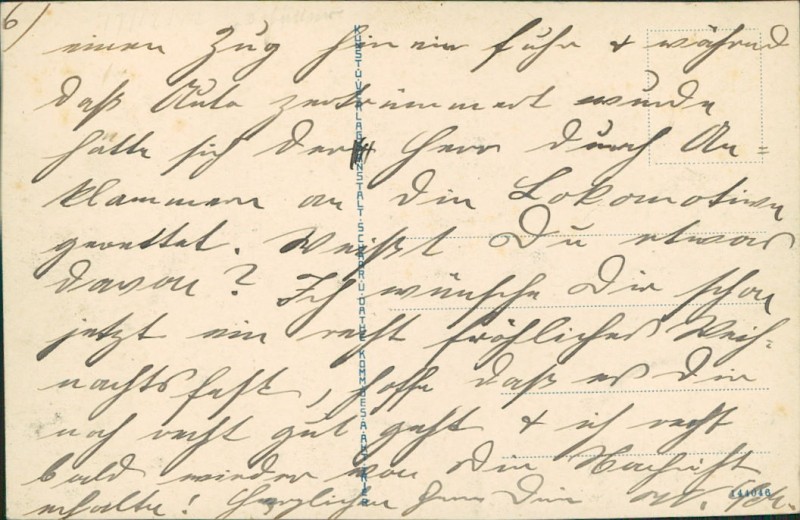 6)
einen Zug hinein fuhr & während
daß Auto zertrümmert wurde
hätte sich der Herr durch An=
klammern an die Lokomotive
gerettet. Weißt Du etwas
davon? Ich wünsche Dir schon
jetzt ein recht fröhliches Weih=
nachtsfest, hoffe daß es Dir
noch recht gut geht & ich recht
bald wieder von Dir Nachricht
erhalte! Herzlichen
KUNST.U.VERLAGSANSTALT.SCHAAR.U.DATHE.KOMM.GES.A.A.TRIER
444046